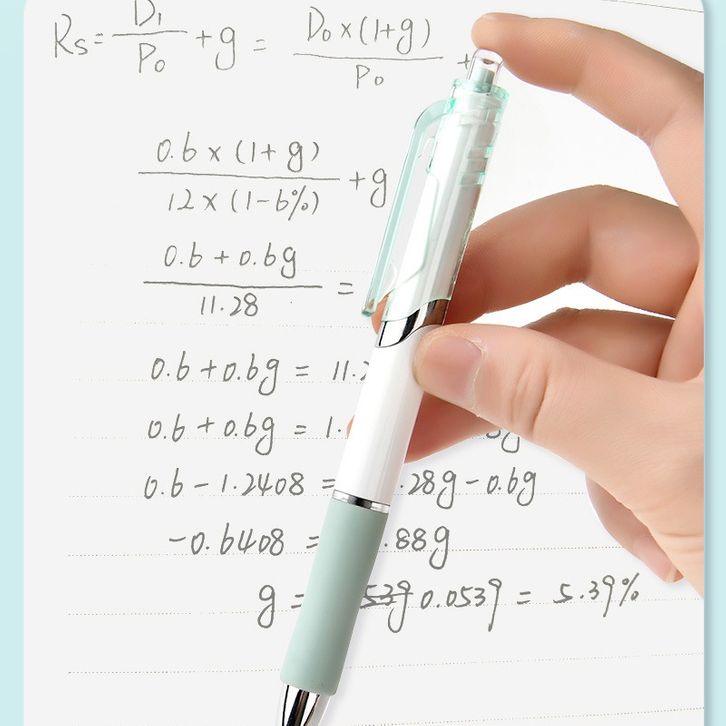 Rs = D₁/P₀ + g = D₀×(1+g)/P₀ +
0.6 × (1+g)/12 × (1-6%) + g
0.6 + 0.6g/11.28 =
0.6 + 0.6g = 11.2
0.6 + 0.6g = 1. g
0.6 - 1.2408 = .28g - 0.6g
-0.6408 = .88g
g = 0.0539 = 5.39%